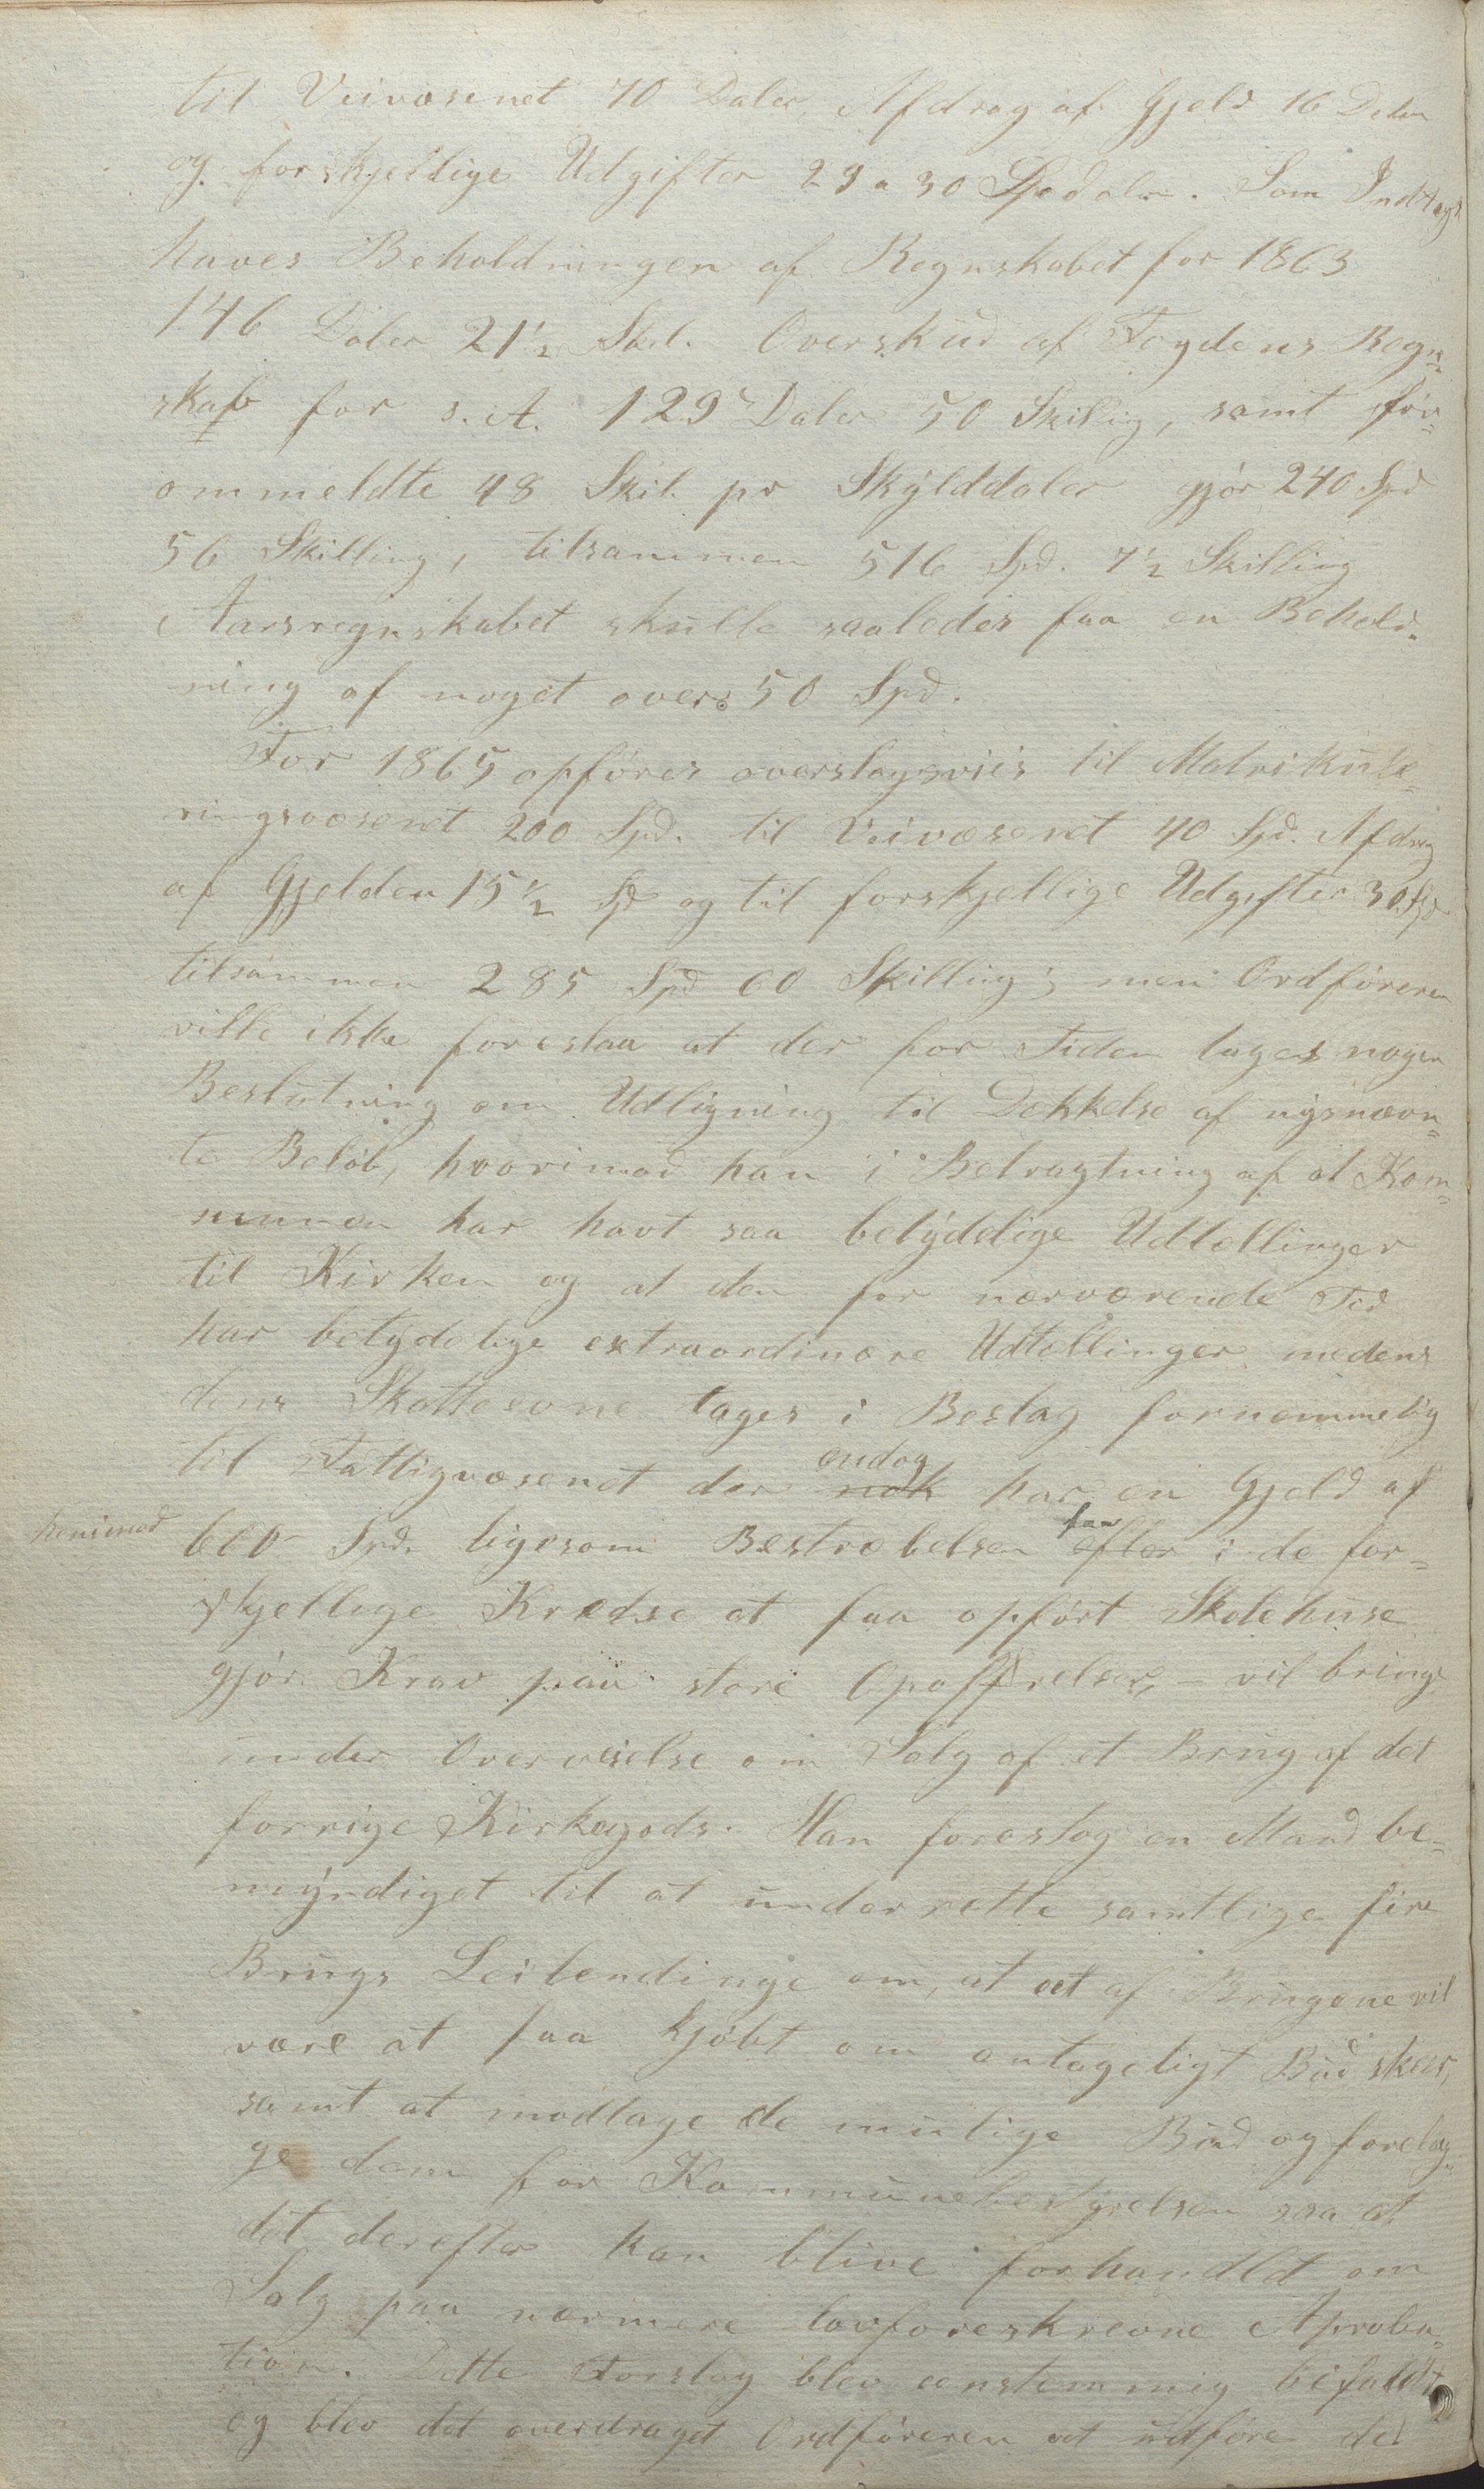 til Veivæsenet 40 Daler, Afdrag af Gjeld 16 Daler
og forskjellige Udgifter 29 a 30 Spedaler. Som Indtægt
haves Beholdningen af Regnskabet for 1863
146 Daler 21½ Skil. Overskud af Fogdens Regn-
skab for s. A. 129 Daler 50 Skilling, samt for-
ommeldte 48 Skil. pr Skylddaler gjør 240 Spd
56 Skilling, tilsammen 516 Spd. 7½ Skilling
Aarsregnskabet skulle saaledes faa en Behold-
ning af noget over 50 Spd.
For 1865 opføres overslagsviis til Matrikule-
ringsvæsenet 200 Spd. til Veivæsenet 40 Spd. Afdrag
af Gjelden 15½ Spd og til forskjellige Udgifter 30 Spd
tilsammen 285 Spd 60 Skilling; men Ordføreren
ville ikke foreslaa at der for Tiden tages nogen
Beslutning om Udligning til Dækkelse af nysnævn-
te Beløb, hvorimod han i Betragtning af at Kom-
munen har havt saa betydelige Udtællinger
til Kirken og at den for nærværende Tid
har betydelige extraordinære Udtællinger medens
dens Skatteevne tages i Beslag fornemmelig
til Fattigvæsenet der nok endog har en Gjeld af
henimod 600 Spd. ligesom Bestræbelsen efter i de for-
skjellige Kredse at faa opført Skolehuse
gjør Krav paa store Opoffrelser, – vil bringe
under Overveielse om Salg af et Brug af det
forrige Kirkegods. Han foreslog en Mand be-
myndiget til at underrette samtlige fire
Brugs Leilendinge om, at et af Brugene vil
være at faa kjøbt om antageligt Bud skeer,
samt at modtage de mulige Bud og forelæg-
ge dem for Kommunebestyrelsen saa at
det derefter kan blive forhandlet om
Salg paa nærmere lovforeskrevne Aproba-
tion. Dette Forslag blev eenstemmig bifaldt
og blev det overdraget Ordføreren at udføre det